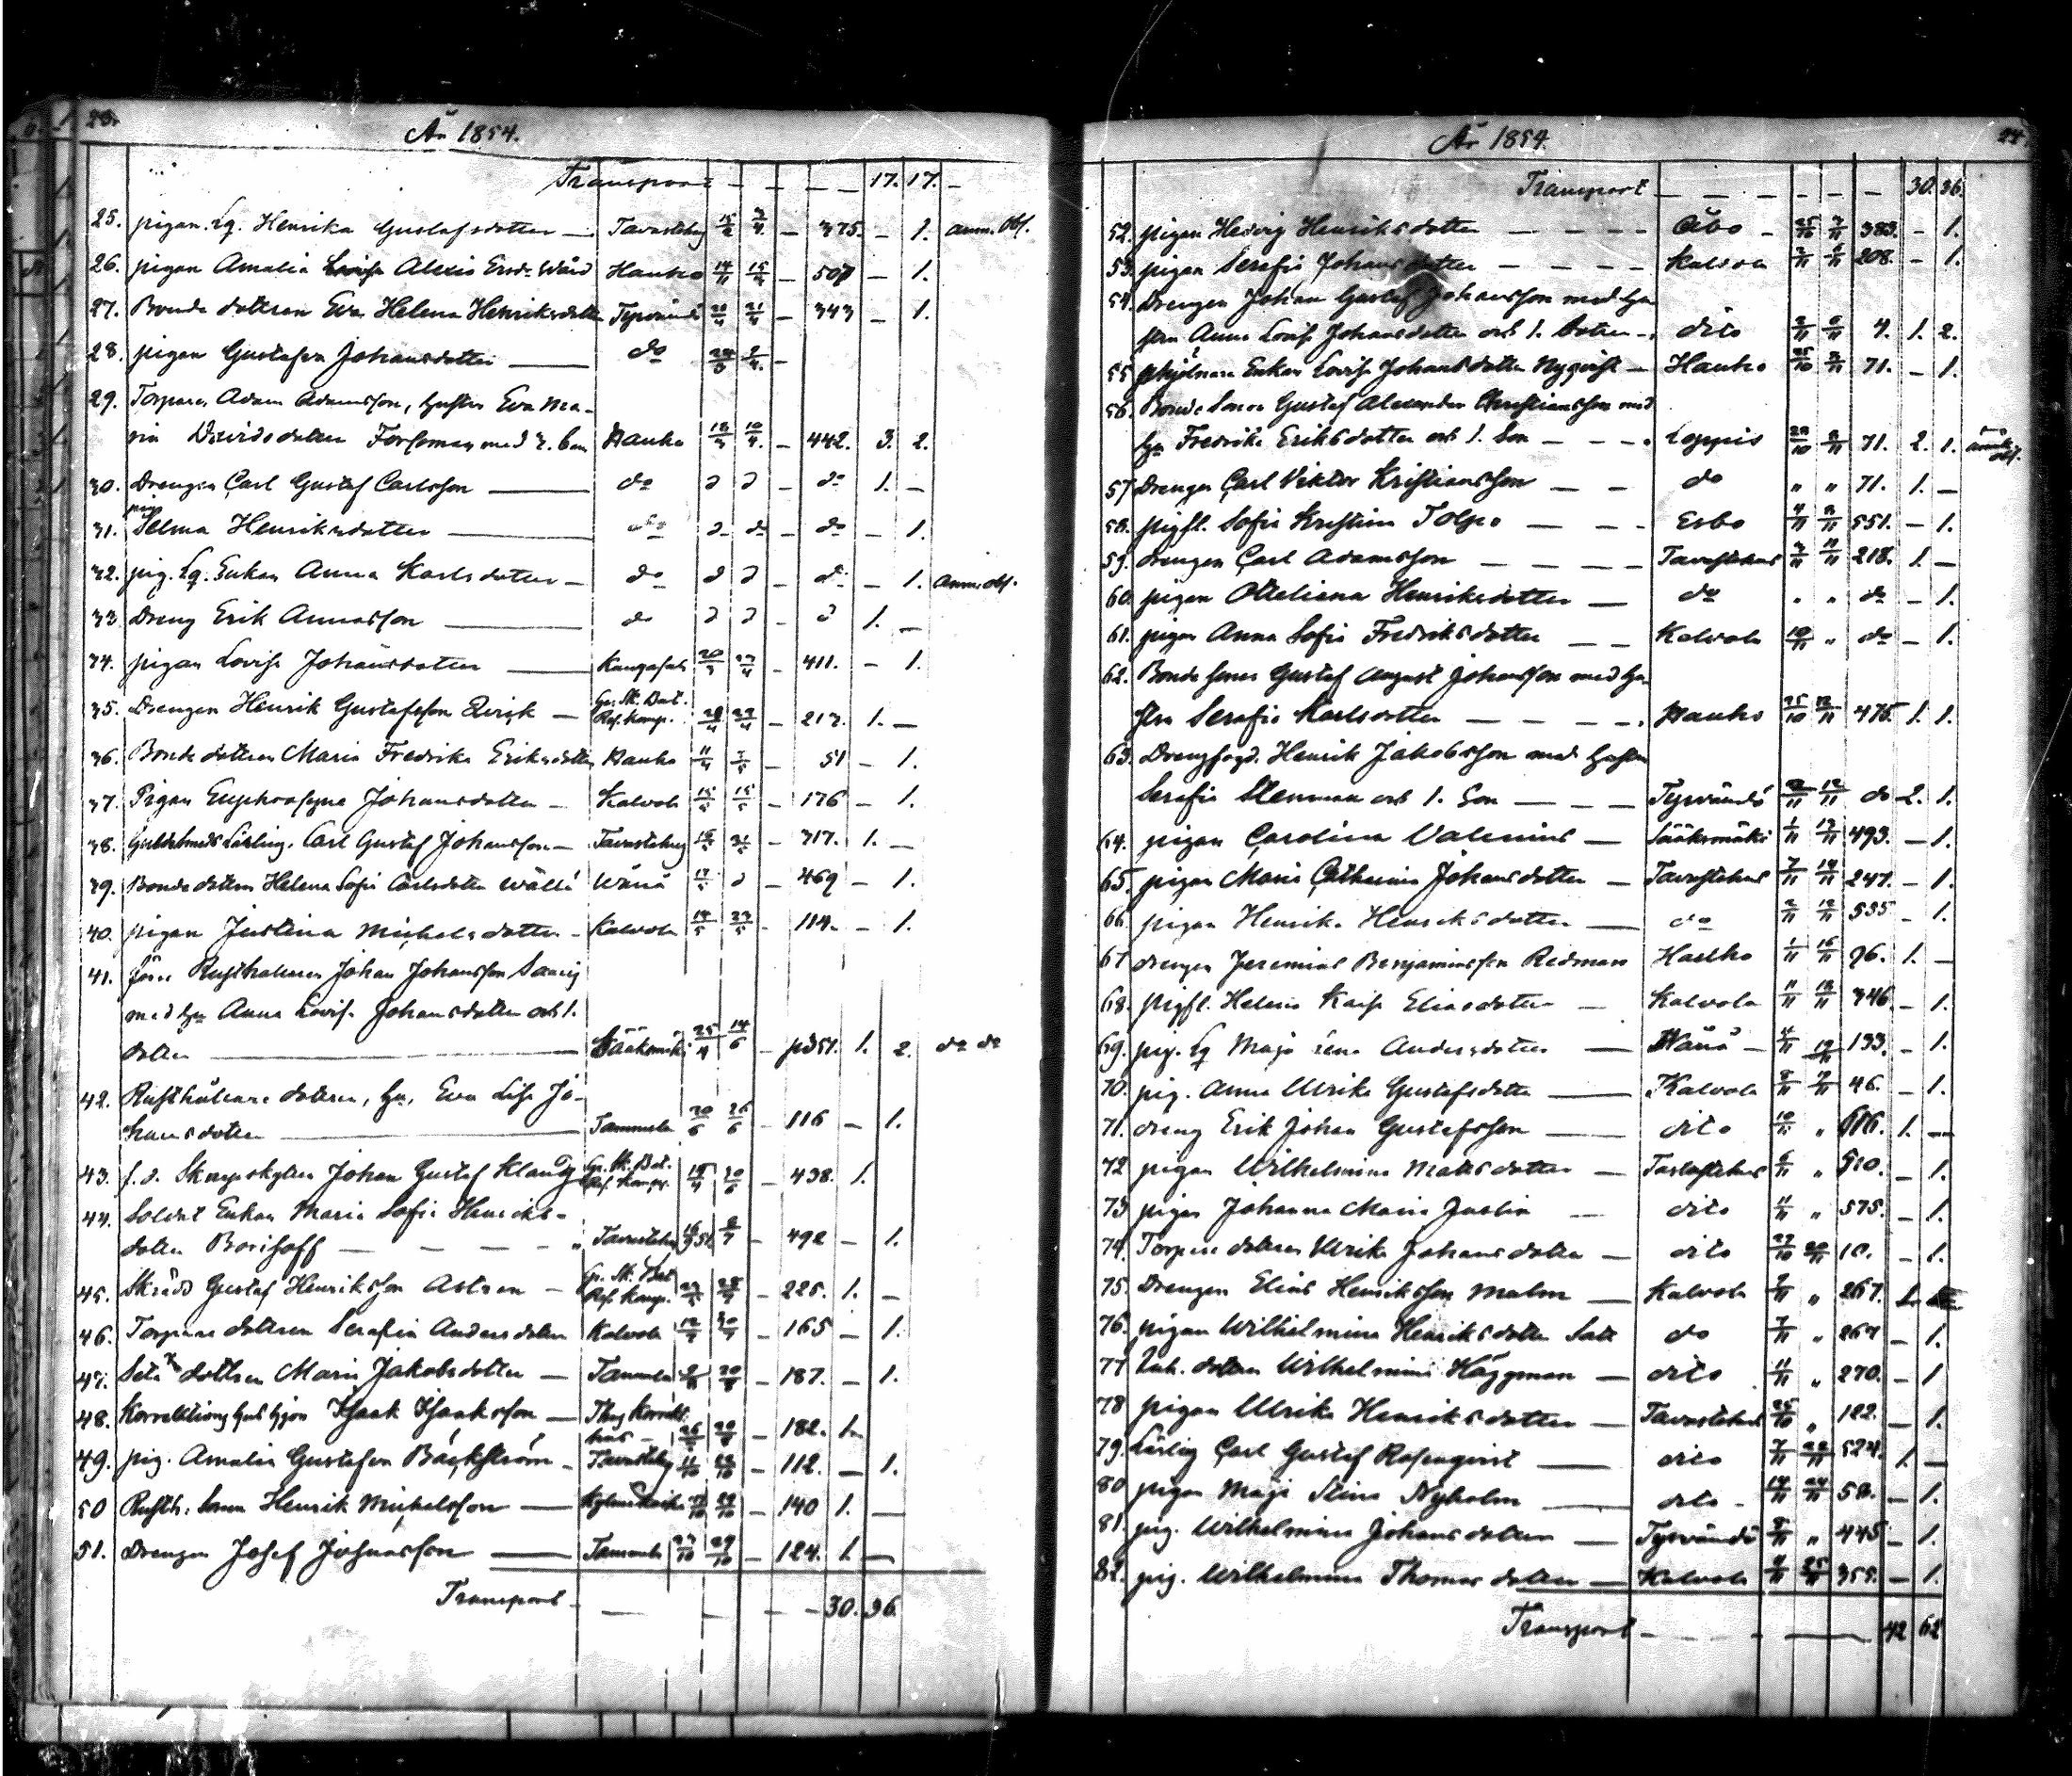 23.
År 1854.
Transport - - - - 17. 17. -
25. pigan. Lg. Henrika Gustafsdotter — Tavastehus 15/2 3/4 - 375. - 1. anm. Obs.
26. pigan Amalia Lovisa Alexis Ersd. Wård Hauho 14/11 15/4 - 507 - 1.
27. Bonde dottren Eva Helena Henriksdotter Tyrvändö 20/4 21/4 - 343 - 1.
28. pigan Gustafva Johansdotter — do -
29. Torparen Adam Adamsson, hustru Eva Ma-
ria Davidsdotter Forsman med 2. barn Hauho 18/3 10/4 - 442. 3. 2.
30. Drengen Carl Gustaf Carlsson — do d d - do 1. -
pig.
31. Selma Henriksdotter — do d do - do - 1.
32. pig. Lg. Enkan Anna Karlsdotter - do d d - do - 1. anm. obs.
33. Dreng Erik Annasson — do d d - d 1. -
34. pigan Lovisa Johansdotter — Kangasala 20/3 23/4 - 411. - 1.
35. Drengen Henrik Gustafsson Qvick — Gr. Sk. Bat. Res. Komp. 28/4 23/4 - 217. 1. -
36. Bonde dottren Maria Fredrika Eriksdotter Hauho 11/4 7/5 - 51 - 1.
37. Pigan Euphrosyne Johansdotter - Kalvola 15/5 15/5 - 176 - 1.
38. Guldsmeds Lärling. Carl Gustaf Johansson - Tavastehus 31/5 - 317. 1. -
39. Bonde dottren Helena Sofia Carlsdotter Wälli Wånå 17/5 d - 469 - 1.
40. pigan Justina Michelsdotter - Kalvola 14/5 23/5 - 114. - 1.
41. förre Rusthållaren Johan Johansson Saarij
med hu Anna Lovisa Johansdotter och 1.
dotter — Sääksmäki 25/4 14/6 - pd51. 1. 2. do do
42. Rusthållare dottren, hu, Eva Lisa Jo-
hansdotter — Tammela 20/6 26/6 - 116 - 1.
43. f. d. Skarpskytten Johan Gustaf Klang Gr. Sk. Bat. Res. Komp. 18/4 30/6 - 438. 1.
44. Soldat Enkan Maria Sofia Henriks-
dotter Borisoff — — — Tavastehus - 492 - 1.
45. Skrädd Gustaf Henriksson Astren - Gr. Sk. Bat Res. Komp. - 225. 1. -
46. Torpare dottren Serafia Andersdotter Kalvola 12/7 30/7 - 165 - 1.
47. Dottren Maria Jakobsdotter — Tammela 20/8 - 187. - 1.
48. Korrektionshus hjon Isaak Isaaksson — Thus Korrekt. hus - 26/8 - 182. 1.
49. pig. Amalia Gustafva Bäckström - Tavastehus 11/10 22/10 - 112. - 1.
50 Rusth. Sonen Henrik Michelsson — 29/10 - 140 1. -
51. Drengen Josef Josuasson — Tammela 27/10 29/10 - 124. 1. -
Transport - — - - 30. 36.
24.
År 1854.
Transport - - - - - 30. 36.
52. pigan Hedvig Henriksdotter - - - Åbo - 25/10 3/11 383. - 1.
53. pigan Serafia Johansdotter - - - Kalvola 2/11 5/11 208. - 1.
54. Drengen Johan Gustaf Johansson med hu-
stru Anna Lovisa Johansdotter och 1. dotter - dito 2/11 5/11 4. 1. 2.
55 Enkan Lovisa Johansdotter Nyqvist — Hauho 25/10 71. - 1.
56. Bonde Sonen Gustaf Alexander Christiansson med
hu Fredrika Eriksdotter och 1. Son - - - Loppis 71. 2. 1.
57 Drengen Carl Viktor Kristiansson - - do " " 71. 1. -
58. pigfl. Sofia Kristina Tolpo - - - Esbo 551. - 1.
59. drengen Carl Adamsson - - - - Tavastehus 3/11 11/11 218. 1. -
60. pigan Otteliana Henriksdotter — do " " do - 1.
61. pigan Anna Sofia Fredriksdotter - - Kalvola 10/11 " do - 1.
62. Bonde sonen Gustaf August Johansson med hu-
stru Serafia Karlsdotter - - - - Hauho 25/10 12/11 476. 1. 1.
63. Drengfogd. Henrik Jakobsson med hustru
Serafia Stenman och 1. Son - - - Tyrvändö 12/11 do 2. 1.
64. pigan Carolina Valenius — Sääksmäki 1/11 13/11 493. - 1.
65. pigan Maria Catharina Johansdotter — Tavastehus 7/11 14/11 247. - 1.
66 pigan Henrika Henriksdotter — do 535 - 1.
67 drengen Jeremias Benjaminsson Redman Hauho 1/11 16/11 96. 1. -
68. pigfl. Helena Kaisa Eliasdotter — Kalvola 11/11 18/11 346. - 1.
69. pig. Lg Maja Lena Andersdotter — Wånå - 4/11 19/11 133. - 1.
70. pig. Anna Ulrika Gustafsdotter — Kalvola 46. - 1.
71. dreng Erik Johan Gustafsson — dito 10/11 " 616. 1. —
72 pigan Wilhelmina Matsdotter — Tavastehus 6/11 " 510. - 1.
73 pigan Johanna Maria Juslin — dito 11/11 " 575. - 1.
74. Torpare dottren Ulrika Johansdotter — dito 27/10 20/11 10. - 1.
75. Drengen Elias Henriksson Malm — Kalvola 7/11 " 267. 1.
76. pigan Wilhelmina Henriksdotter Salt do 7/11 " 267 - 1.
77 Inh. dottren Wilhelmina Häggman — dito 11/11 " 270. - 1
78 pigan Ulrika Henriksdotter — Tavastehus 25/10 " 122. - 1.
79. Lärling Carl Gustaf Rosenqvist — dito 7/11 22/11 524. 1. -
80 pigan Maja Stina Nyholm — dito - 14/11 24/11 50. - 1.
81. pig. Wilhelmina Johansdotter — Tyrvändö " 445 - 1.
82. pig. Wilhelmina Thomasdotter — Kalvola 4/11 25/11 355. - 1.
Transport - - - - — 42 62